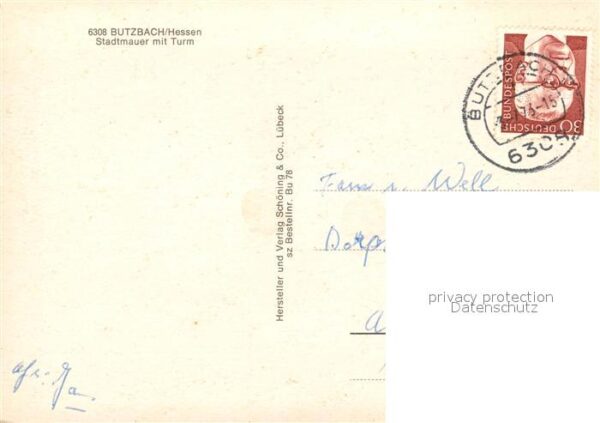 6308 BUTZBACH/Hessen
Stadtmauer mit Turm
Hersteller und Verlag Schöning & Co., Lübeck
sz Bestellnr. Bu 78
DEUTSCHE BUNDESPOST
30
BUTZBACH
6308
Well
privacy protection
Datenschutz